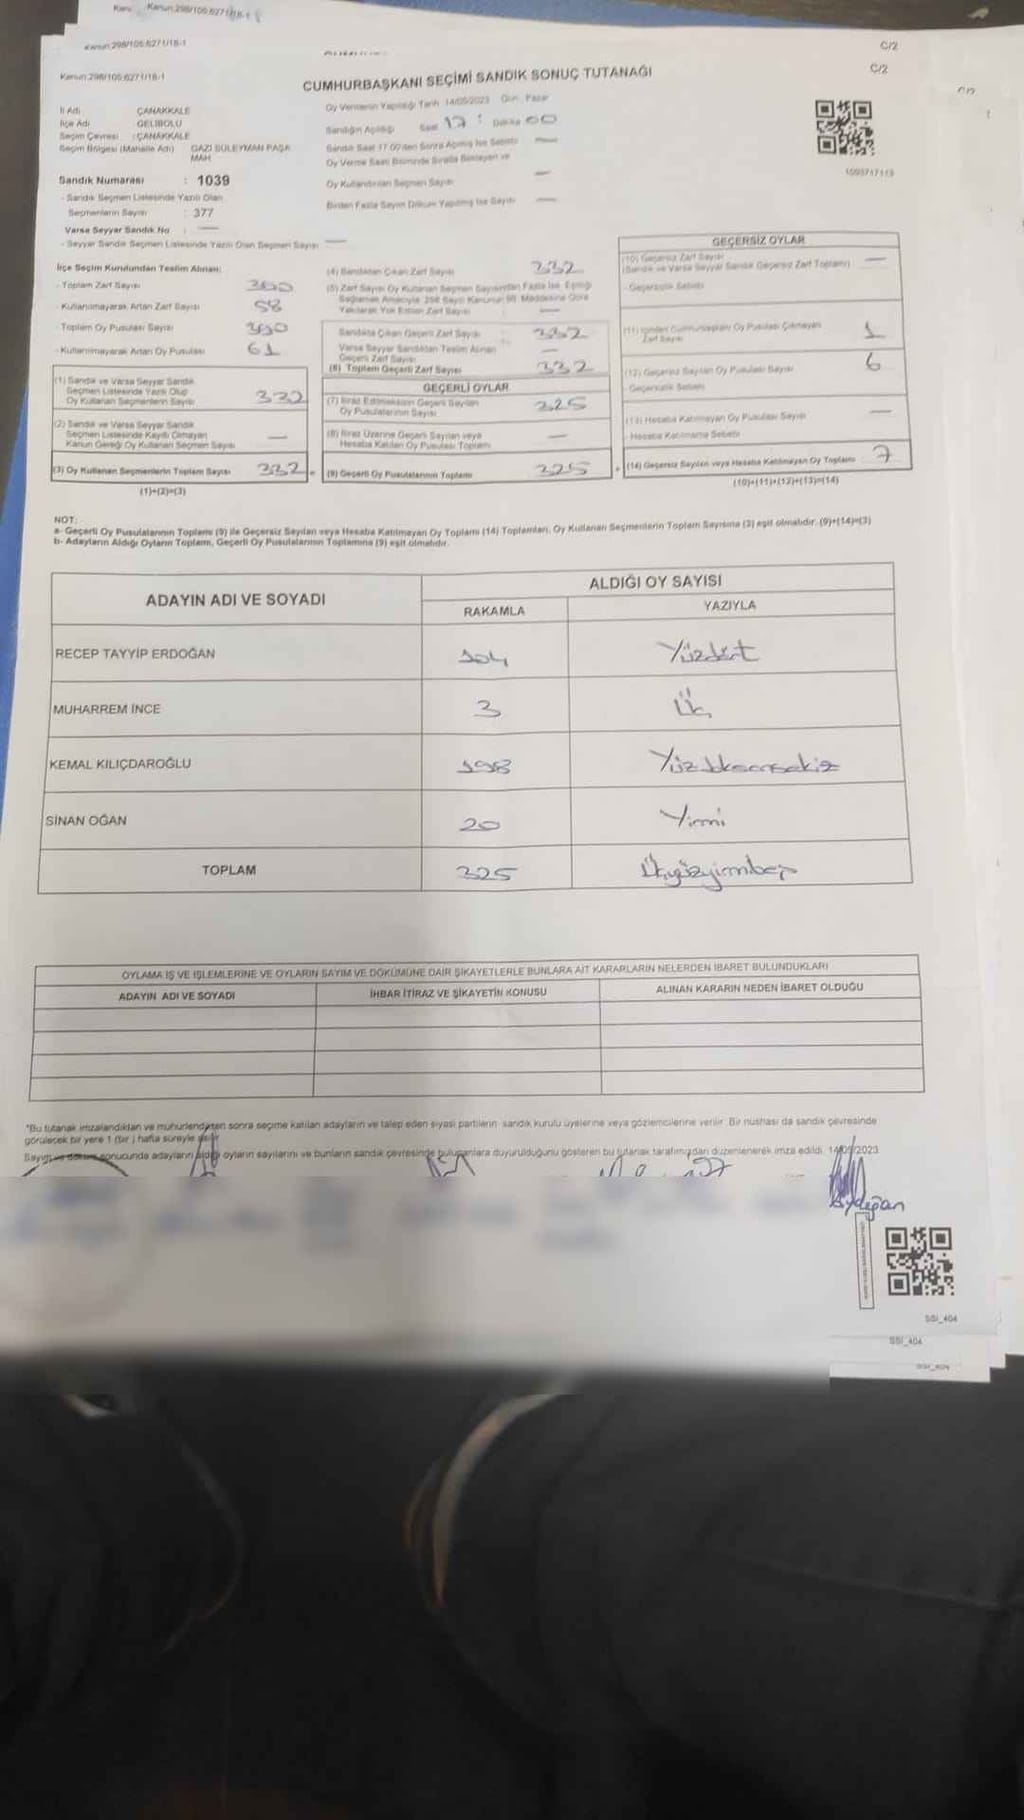 Kanun:298/105:6271/18-1
Kanun:298/105:6271/18-1
C/2
Kanun:298/105:6271/18-1
C/2
CUMHURBAŞKANI SEÇİMİ SANDIK SONUÇ TUTANAĞI
İl Adı : ÇANAKKALE
İlçe Adı : GELİBOLU
Seçim Çevresi : ÇANAKKALE
Seçim Bölgesi (Mahalle Adı) : GAZİ SÜLEYMAN PAŞA MAH
Sandık Numarası : 1039
- Sandık Seçmen Listesinde Yazılı Olan
Seçmenlerin Sayısı : 377
Varsa Seyyar Sandık No : —
- Seyyar Sandık Seçmen Listesinde Yazılı Olan Seçmen Sayısı —
Oy Vermenin Yapıldığı Tarih 14/05/2023 Gün: Pazar
Sandığın Açıldığı Saat 17 : Dakika 00
Sandık Saat 17.00'den Sonra Açılmış İse Sebebi —
Oy Verme Saati Bitiminde Sırada Bekleyen ve
Oy Kullandırılan Seçmen Sayısı —
Birden Fazla Sayım Döküm Yapılmış İse Sayısı —
1093717113
İlçe Seçim Kurulundan Teslim Alınan:
- Toplam Zarf Sayısı 390
- Kullanılmayarak Artan Zarf Sayısı 58
- Toplam Oy Pusulası Sayısı 390
- Kullanılmayarak Artan Oy Pusulası 61
(1) Sandık ve Varsa Seyyar Sandık
Seçmen Listesinde Yazılı Olup
Oy Kullanan Seçmenlerin Sayısı 332
(2) Sandık ve Varsa Seyyar Sandık
Seçmen Listesinde Kayıtlı Olmayan
Kanun Gereği Oy Kullanan Seçmen Sayısı —
(3) Oy Kullanan Seçmenlerin Toplam Sayısı 332
(1)+(2)=(3)
(4) Sandıktan Çıkan Zarf Sayısı 332
(5) Zarf Sayısı Oy Kullanan Seçmen Sayısından Fazla İse, Eşitliği
Sağlamak Amacıyla 298 Sayılı Kanunun 98. Maddesine Göre
Yakılarak Yok Edilen Zarf Sayısı —
Sandıkta Çıkan Geçerli Zarf Sayısı 332
Varsa Seyyar Sandıktan Teslim Alınan
Geçerli Zarf Sayısı —
(6) Toplam Geçerli Zarf Sayısı 332
GEÇERLİ OYLAR
(7) İtiraz Edilmeksizin Geçerli Sayılan
Oy Pusulalarının Sayısı 325
(8) İtiraz Üzerine Geçerli Sayılan veya
Hesaba Katılan Oy Pusulası Toplamı —
(9) Geçerli Oy Pusulalarının Toplamı 325
GEÇERSİZ OYLAR
(10) Geçersiz Zarf Sayısı
(Sandık ve Varsa Seyyar Sandık Geçersiz Zarf Toplamı) —
- Geçersizlik Sebebi
(11) İçinden Cumhurbaşkanı Oy Pusulası Çıkmayan
Zarf Sayısı 1
(12) Geçersiz Sayılan Oy Pusulası Sayısı 6
- Geçersizlik Sebebi
(13) Hesaba Katılmayan Oy Pusulası Sayısı —
- Hesaba Katılmama Sebebi
(14) Geçersiz Sayılan veya Hesaba Katılmayan Oy Toplamı 7
(10)+(11)+(12)+(13)=(14)
NOT:
a- Geçerli Oy Pusulalarının Toplamı (9) ile Geçersiz Sayılan veya Hesaba Katılmayan Oy Toplamı (14) Toplamları, Oy Kullanan Seçmenlerin Toplam Sayısına (3) eşit olmalıdır. (9)+(14)=(3)
b- Adayların Aldığı Oyların Toplamı, Geçerli Oy Pusulalarının Toplamına (9) eşit olmalıdır.
ADAYIN ADI VE SOYADI
ALDIĞI OY SAYISI
RAKAMLA
YAZIYLA
RECEP TAYYİP ERDOĞAN 104 Yüzdört
MUHARREM İNCE 3 Üç
KEMAL KILIÇDAROĞLU 198 Yüzdoksansekiz
SİNAN OĞAN 20 Yirmi
TOPLAM 325 Üçyüzyirmibeş
OYLAMA İŞ VE İŞLEMLERİNE VE OYLARIN SAYIM VE DÖKÜMÜNE DAİR ŞİKAYETLERLE BUNLARA AİT KARARLARIN NELERDEN İBARET BULUNDUKLARI
ADAYIN ADI VE SOYADI
İHBAR İTİRAZ VE ŞİKAYETİN KONUSU
ALINAN KARARIN NEDEN İBARET OLDUĞU
*Bu tutanak imzalandıktan ve mühürlendikten sonra seçime katılan adayların ve talep eden siyasi partilerin sandık kurulu üyelerine veya gözlemcilerine verilir. Bir nüshası da sandık çevresinde
görülecek bir yere 1 (bir ) hafta süreyle asılır
Sayım ve döküm sonucunda adayların aldığı oyların sayılarını ve bunların sandık çevresinde bulunanlara duyurulduğunu gösteren bu tutanak tarafımızdan düzenlenerek imza edildi. 14/05/2023
SSI_404
SSI_404